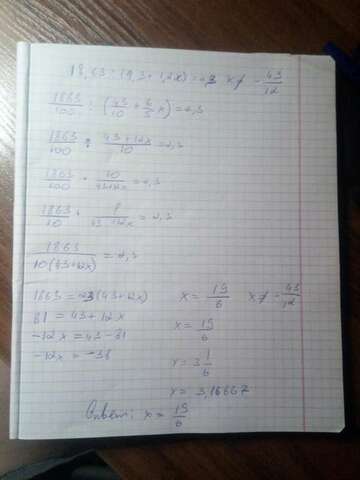 18,63 : (4,3 + 1,2x) = 2,3 x ≠ - 43/12
1863/100 : (43/10 + 6/5 x) = 2,3
1863/100 : (43 + 12x)/10 = 2,3
1863/100 · 10/(43+12x) = 2,3
1863/10 · 1/(43+12x) = 2,3
1863/(10(43+12x)) = 2,3
1863 = 23(43+12x)
81 = 43 + 12x
-12x = 43 - 81
-12x = -38
x = 19/6 x ≠ - 43/12
x = 19/6
x = 3 1/6
x = 3,16667
Ответ: x = 19/6